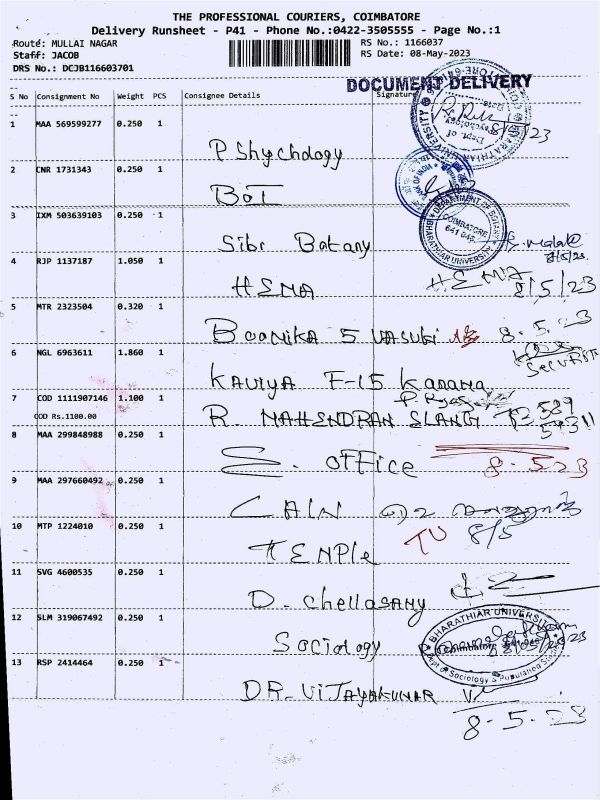 THE PROFESSIONAL COURIERS, COIMBATORE
Delivery Runsheet - P41 - Phone No.:0422-3505555 - Page No.:1
Route: MULLAI NAGAR
RS No.: 1166037
Staff: JACOB
RS Date: 08-May-2023
DRS No.: DCJB116603701
DOCUMENT DELIVERY
S No Consignment No Weight PCS Consignee Details Signature
1 MAA 569599277 0.250 1
PShychology 8/5/23
BHARATHIAR UNIVERSITY
Dept of Psychology
2 CNR 1731343 0.250 1
BOI
3 IXM 503639103 0.250 1
DEPARTMENT OF BOTANY
COIMBATORE
641 046
BHARATHIAR UNIVERSITY
Sibi Botany
8/5/23
4 RJP 1137187 1.050 1
HEMA HEMA
8/5/23
5 MTR 2323504 0.320 1
BOONIKA 5 VASUKI 8.5.23
6 NGL 6963611 1.860 1
KAVIYA F-15 Kadana
7 COD 1111907146 1.100 1
COD Rs.1100.00
R MAHENDRAN SLANG
8 MAA 299848988 0.250 1
E. OFFICE 8.523
9 MAA 297660492 0.250 1
10 MTP 1224010 0.250 1
TU 8/5
TEMPLE
11 SVG 4600535 0.250 1
D. Chellasamy
12 SLM 319067492 0.250 1
Sociology
BHARATHIAR UNIVERSITY
Dept of Sociology & Population Studies
13 RSP 2414464 0.250 1
DR. VIJAYAKUMAR
8-5-23